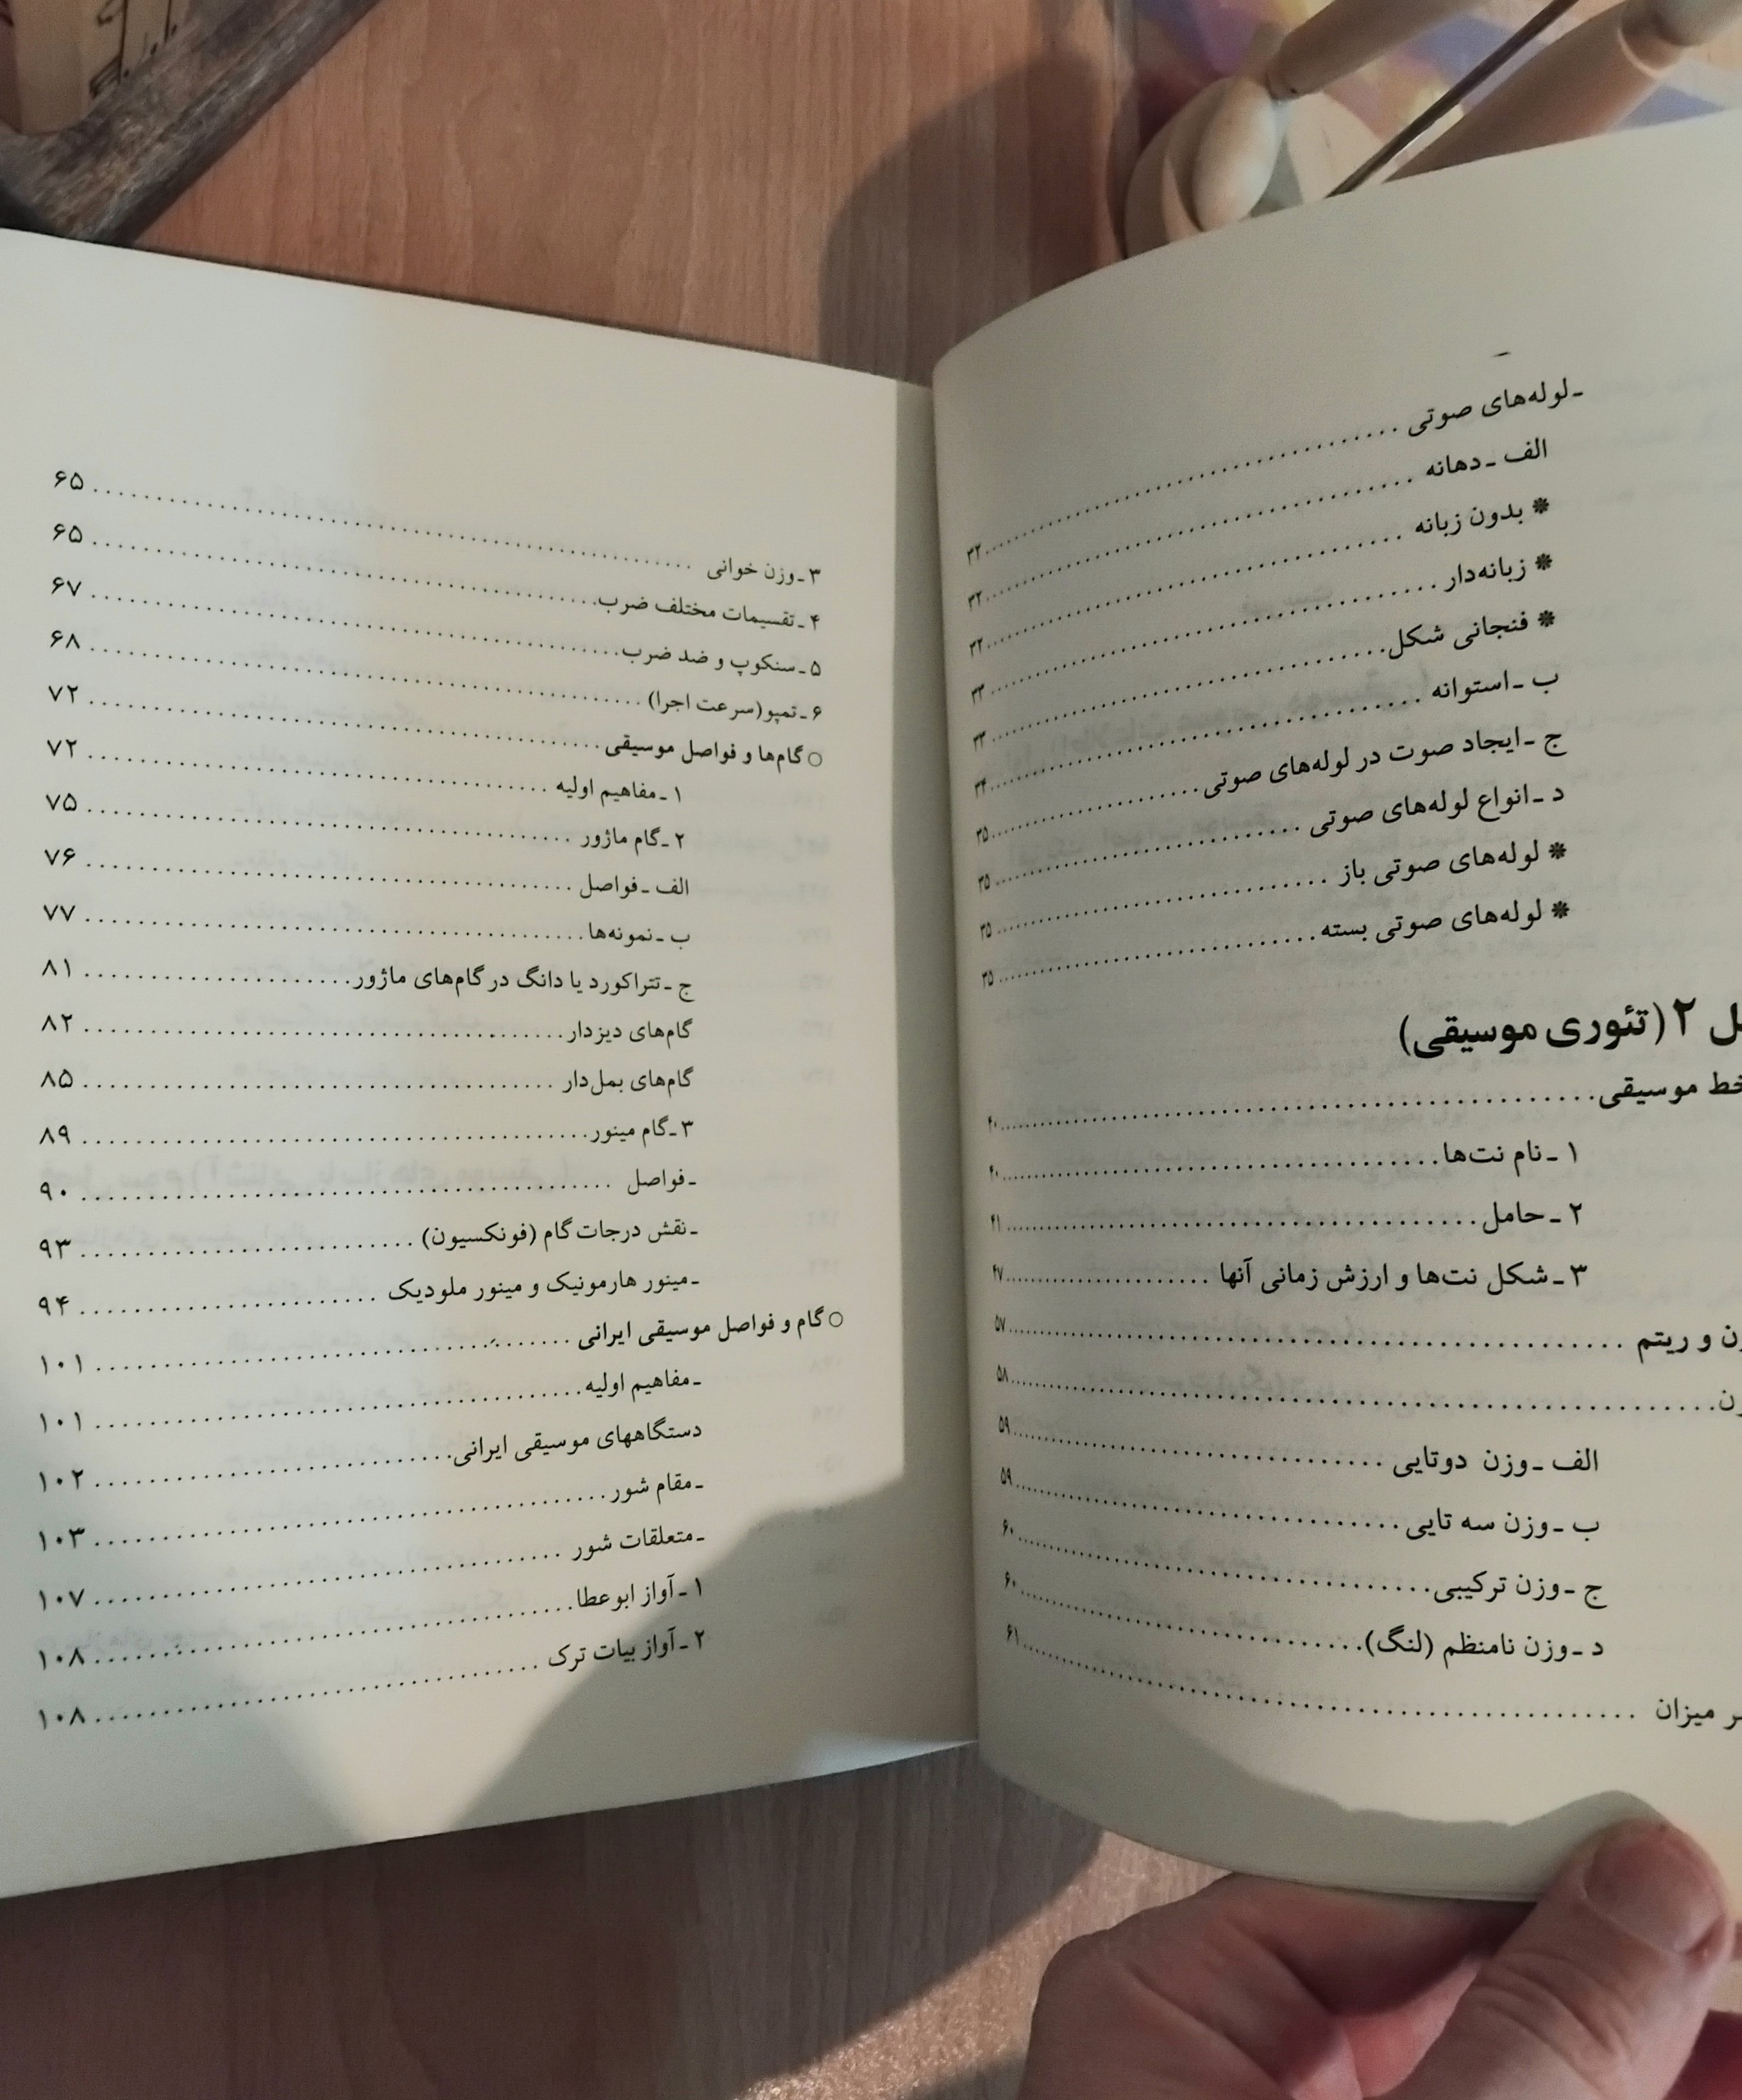 ـ لوله‌های صوتی ........ ۳۲
الف ـ دهانه ........ ۳۲
* بدون زبانه ........ ۳۲
* زبانه‌دار ........ ۳۳
* فنجانی شکل ........ ۳۳
ب ـ استوانه ........ ۳۴
ج ـ ایجاد صوت در لوله‌های صوتی ........ ۳۵
د ـ انواع لوله‌های صوتی ........ ۳۵
* لوله‌های صوتی باز ........ ۳۵
* لوله‌های صوتی بسته ........ ۳۵
۲ (تئوری موسیقی)
خط موسیقی ........ ۴۰
۱ ـ نام نت‌ها ........ ۴۰
۲ ـ حامل ........ ۴۱
۳ ـ شکل نت‌ها و ارزش زمانی آنها ........ ۴۷
و ریتم ........ ۵۷
........ ۵۸
الف ـ وزن دوتایی ........ ۵۹
ب ـ وزن سه تایی ........ ۵۹
ج ـ وزن ترکیبی ........ ۶۰
د ـ وزن نامنظم (لنگ) ........ ۶۰
میزان ........ ۶۱
۳ ـ وزن خوانی ........ ۶۵
۴ ـ تقسیمات مختلف ضرب ........ ۶۵
۵ ـ سنکوپ و ضد ضرب ........ ۶۷
۶ ـ تمپو (سرعت اجرا) ........ ۶۸
○ گام‌ها و فواصل موسیقی ........ ۷۲
۱ ـ مفاهیم اولیه ........ ۷۲
۲ ـ گام ماژور ........ ۷۵
الف ـ فواصل ........ ۷۶
ب ـ نمونه‌ها ........ ۷۷
ج ـ تتراکورد یا دانگ در گام‌های ماژور ........ ۸۱
گام‌های دیزدار ........ ۸۲
گام‌های بمل‌دار ........ ۸۵
۳ ـ گام مینور ........ ۸۹
ـ فواصل ........ ۹۰
ـ نقش درجات گام (فونکسیون) ........ ۹۳
ـ مینور هارمونیک و مینور ملودیک ........ ۹۴
○ گام و فواصل موسیقی ایرانی ........ ۱۰۱
ـ مفاهیم اولیه ........ ۱۰۱
دستگاههای موسیقی ایرانی ........ ۱۰۲
ـ مقام شور ........ ۱۰۳
ـ متعلقات شور ........ ۱۰۷
۱ ـ آواز ابوعطا ........ ۱۰۸
۲ ـ آواز بیات ترک ........ ۱۰۸